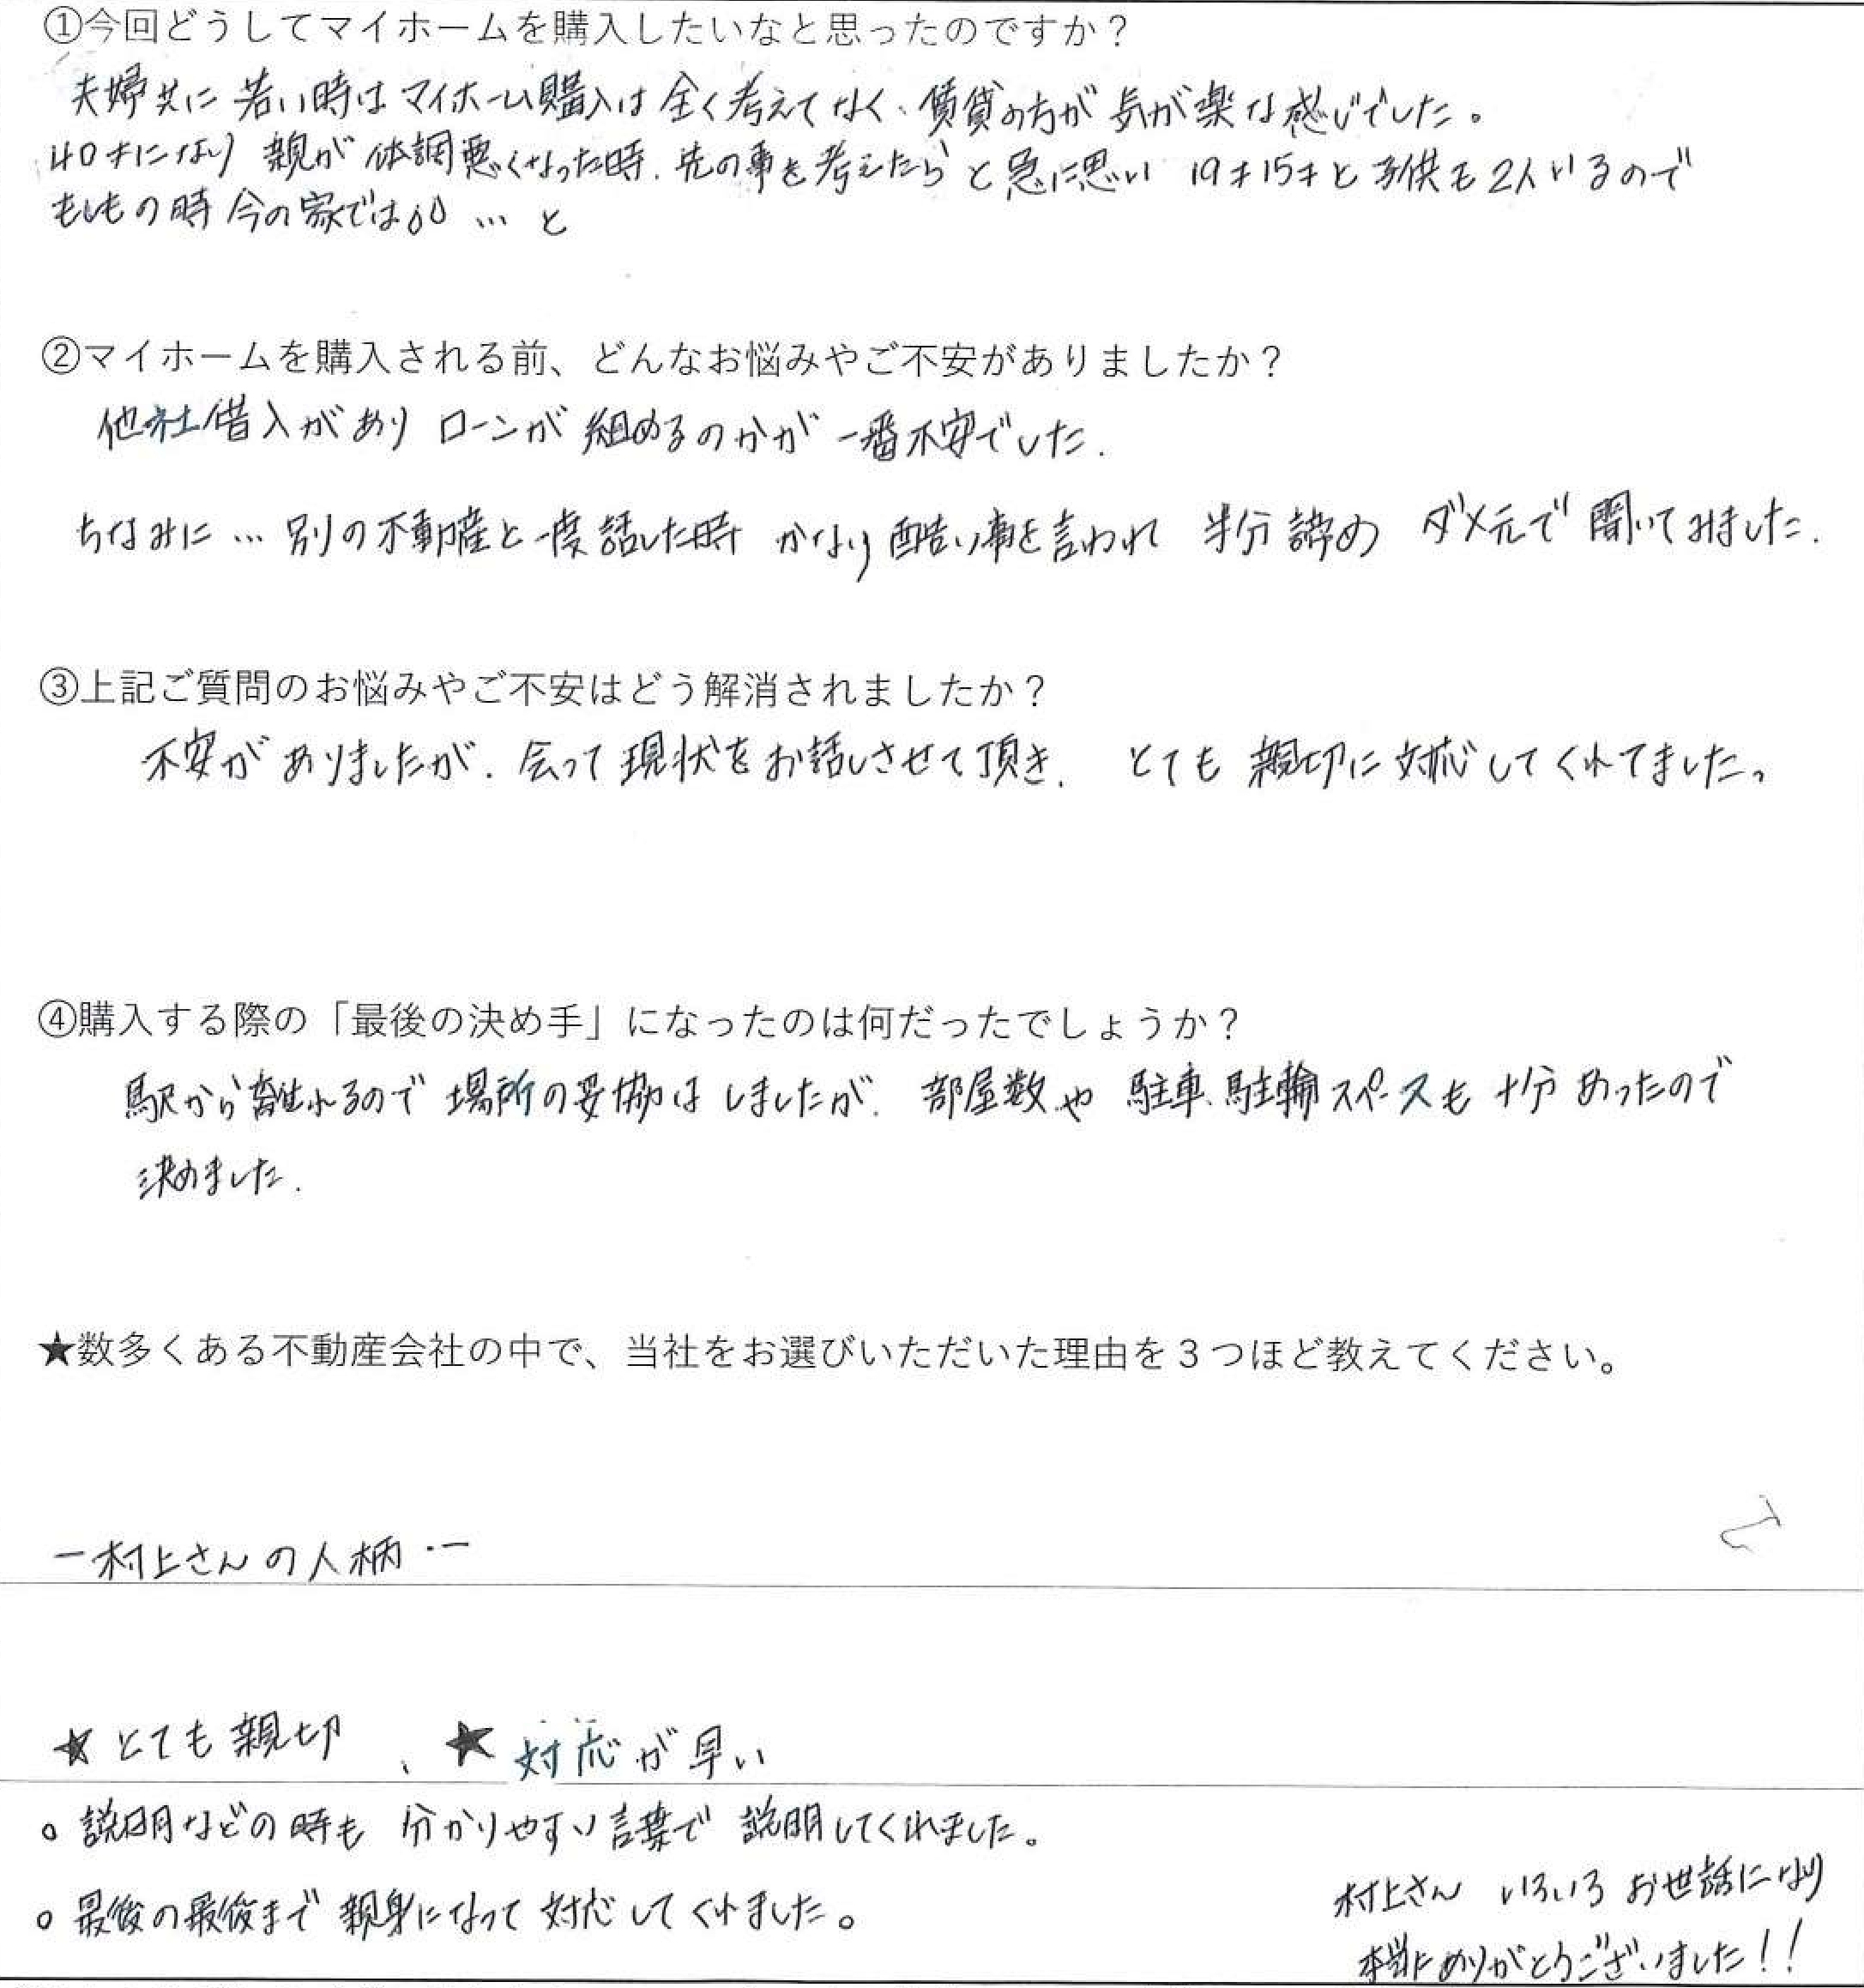 ①今回どうしてマイホームを購入したいなと思ったのですか？
夫婦共に 若い時は マイホーム購入は 全く考えてなく、賃貸の方が 気が楽な感じでした。
40才になり 親が 体調悪くなった時、先の事を考えたら と急に思い 19才15才と子供も2人いるので
もしもの時 今の家では… と
②マイホームを購入される前、どんなお悩みやご不安がありましたか？
他社借入があり ローンが 組めるのかが 一番不安でした．
ちなみに … 別の不動産と一度話した時 かなり酷い事を言われ 半分諦め ダメ元で 聞いてみました．
③上記ご質問のお悩みやご不安はどう解消されましたか？
不安が ありましたが、会って 現状をお話しさせて頂き、 とても 親切に対応してくれてました。
④購入する際の「最後の決め手」になったのは何だったでしょうか？
駅から離れるので 場所の妥協は しましたが、部屋数や 駐車、駐輪スペースも 十分あったので
決めました．
★数多くある不動産会社の中で、当社をお選びいただいた理由を３つほど教えてください。
ー村上さんの人柄・ー
★とても親切 、 ★対応が早い
○ 説明などの時も 分かりやすい言葉で 説明してくれました。
○ 最後の最後まで 親身になって 対応してくれました。
村上さん いろいろ お世話になり
本当にありがとうございました！！